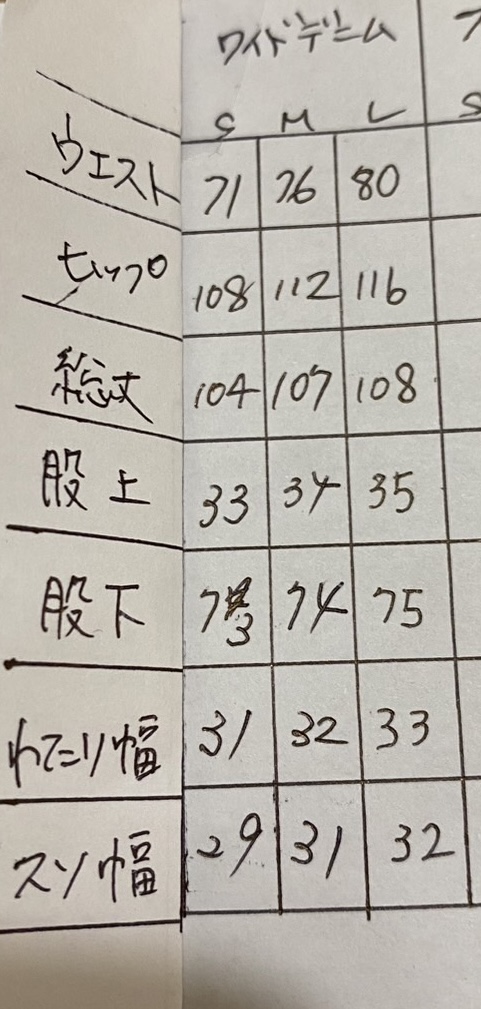 ワイドデニム
S M L S
ウエスト 71 76 80
ヒップ 108 112 116
総丈 104 107 108
股上 33 34 35
股下 73 74 75
わたり幅 31 32 33
スソ幅 29 31 32